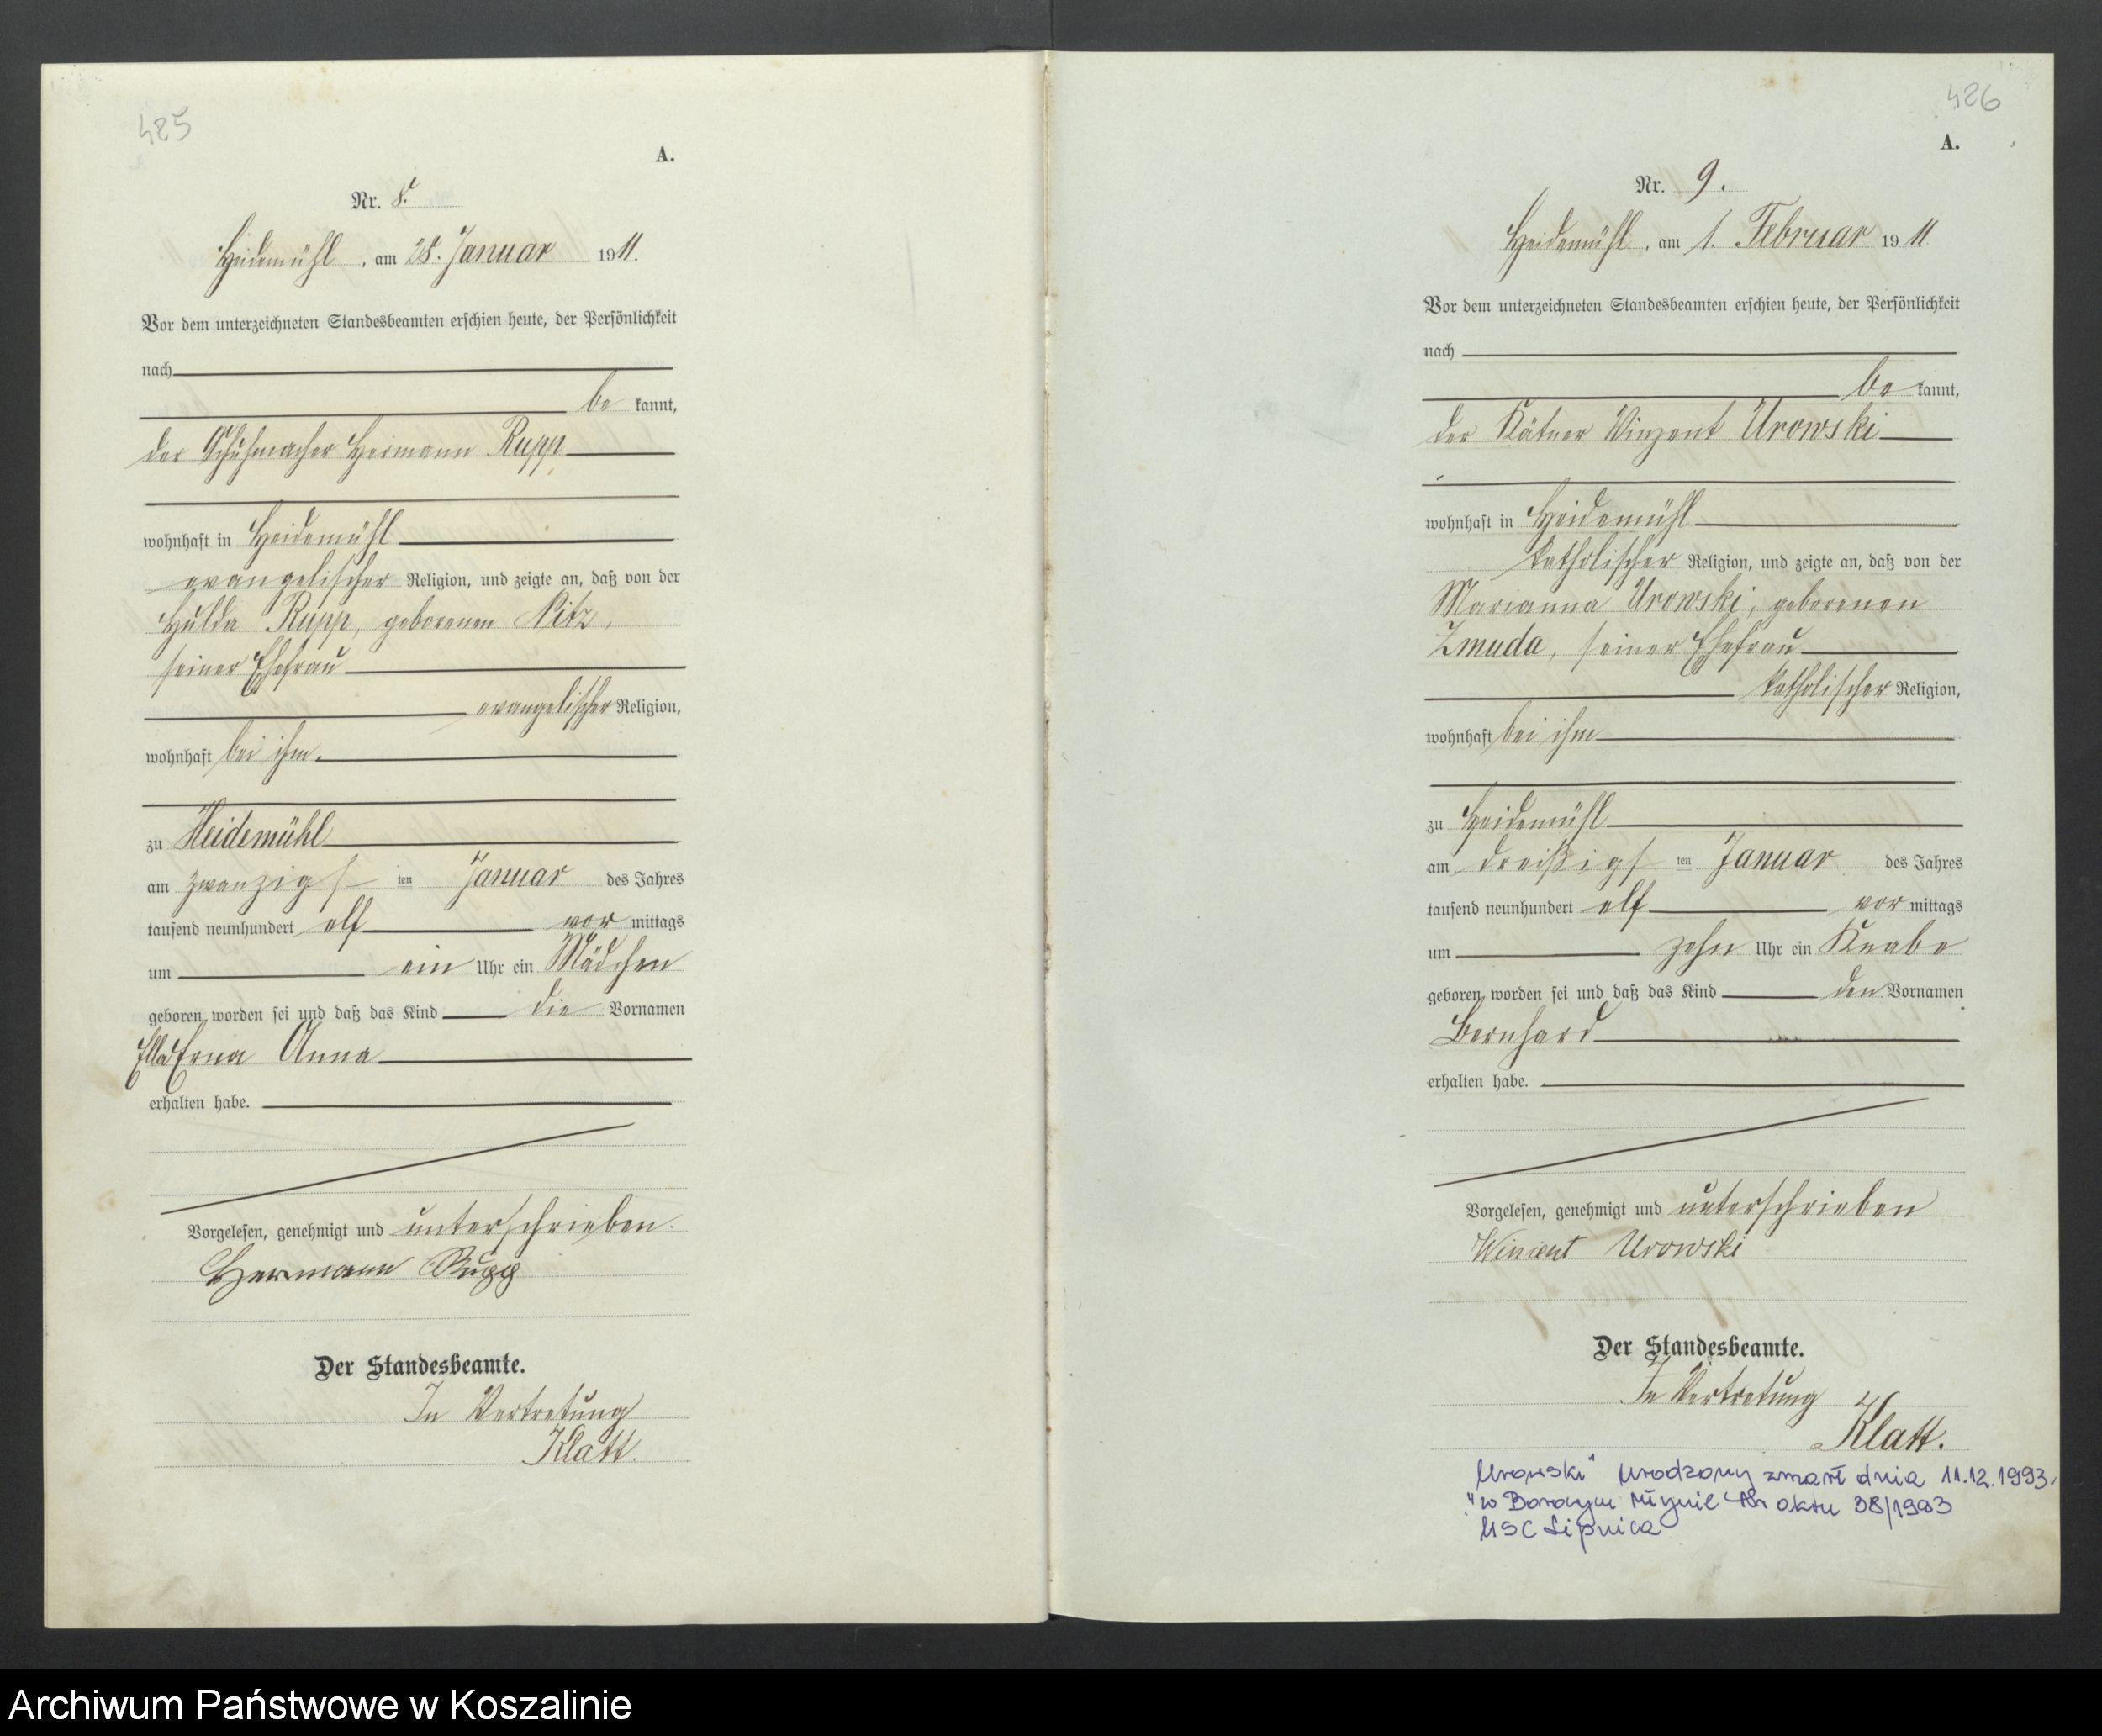 425
A.
Nr. 8.
Heidemühl, am 28. Januar 1911.
Vor dem unterzeichneten Standesbeamten erschien heute, der Persönlichkeit
nach
be kannt,
der Schuhmacher Hermann Rupp
wohnhaft in Heidemühl
evangelischer Religion, und zeigte an, daß von der
Hulda Rupp, geborenen Nitz,
seiner Ehefrau
evangelischer Religion,
wohnhaft bei ihm.
zu Heidemühl
am zwanzigsten Januar des Jahres
tausend neunhundert elf vor mittags
um ein Uhr ein Mädchen
geboren worden sei und daß das Kind die Vornamen
Ella Erna Anna
erhalten habe.
Vorgelesen, genehmigt und unterschrieben.
Hermann Rupp
Der Standesbeamte.
In Vertretung
Klatt.
426
A.
Nr. 9.
Heidemühl, am 1. Februar 1911
Vor dem unterzeichneten Standesbeamten erschien heute, der Persönlichkeit
nach
be kannt,
der Kätner Vinzent Urowski
wohnhaft in Heidemühl
katholischer Religion, und zeigte an, daß von der
Marianna Urowski, geborenen
Zmuda, seiner Ehefrau
katholischer Religion,
wohnhaft bei ihm
zu Heidemühl
am dreißigsten Januar des Jahres
tausend neunhundert elf vor mittags
um zehn Uhr ein Knabe
geboren worden sei und daß das Kind den Vornamen
Bernhard
erhalten habe.
Vorgelesen, genehmigt und unterschrieben
Wincent Urowski
Der Standesbeamte.
In Vertretung
Klatt.
"Urowski" urodzony zmarł dnia 11.12.1993.
w Borowym Młynie Nr aktu 38/1993
USC Lipnica
Archiwum Państwowe w Koszalinie